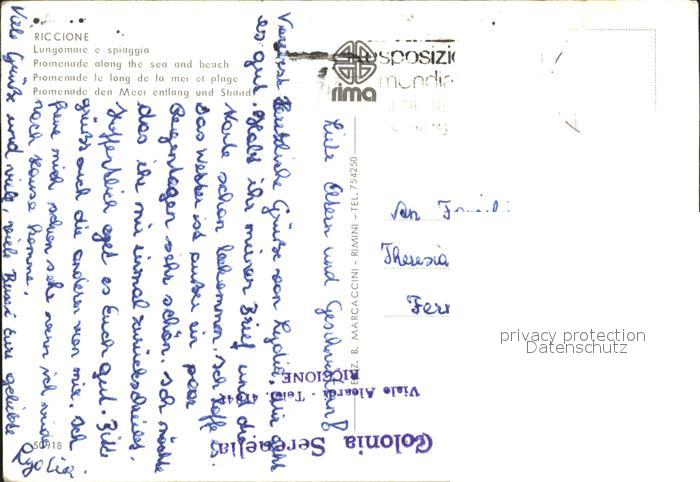 RICCIONE
Lungomare e spiaggia
Promenade along the sea and beach
Promenade le long de la mer et plage
Promenade den Meer entlang und Strand
esposizi
mondia
rima
Liebe Eltern und Geschwister
herzliche Grüße von Lydia. Mir geht
es gut. Habt ihr meinen Brief und die
Karte schon bekommen. Ich hoffe es.
Das Wetter ist außer ein paar
Regentagen sehr schön. Ich möchte
das ihr mir einmal zurückschreibt.
Hoffentlich geht es Euch gut. Bitte
grüßt auch die anderen von mir. Ich
freue mich schon sehr wenn ich wieder
nach Hause komme.
Viele Grüße und viele, viele Bussi Eure geliebte
Lydia.
An
Theresia
Ferr
B. MARCACCINI - RIMINI - TEL. 754250
Colonia Serenella
Viale Aleardi - Telef.
RICCIONE
50918
privacy protection
Datenschutz